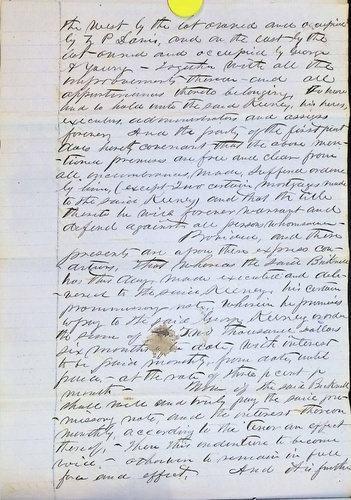 the West by the lot owned and occupied
by P Davis, and on the East by the
lot owned and occupied by George
Young - Together with all the
improvements thereon - and all
appurtenances thereto belonging, To have
and to hold unto the said Keeney, his heirs,
executors, administrators and assigns
forever And the party of the first part
does hereby covenant that the above men-
tioned premises are free and clear from
all incumbrances, made, suffered or done
by him, (except Two certain mortgages made
to the said Keeney) and that the title
thereto he will forever warrant and
defend against all persons whomsoever
Provided, and these
presents are upon these express con-
ditions, That whereas the said Bicknell
has this day made executed and deli-
vered to the said Keeney, his certain
promissory note, wherein he promises
to pay to the said Keeney or order
the sum of Two Thousand dollars
six months date with interest
to be paid monthly, from date, until
paid - at the rate of three per cent per
month Now if the said Bicknell
shall well and truly pay the said pro-
missory note, and the interest thereon
monthly, according to the tenor and effect
thereof, - Then this indenture to become
void. otherwise to remain in full
force and effect. And it is further